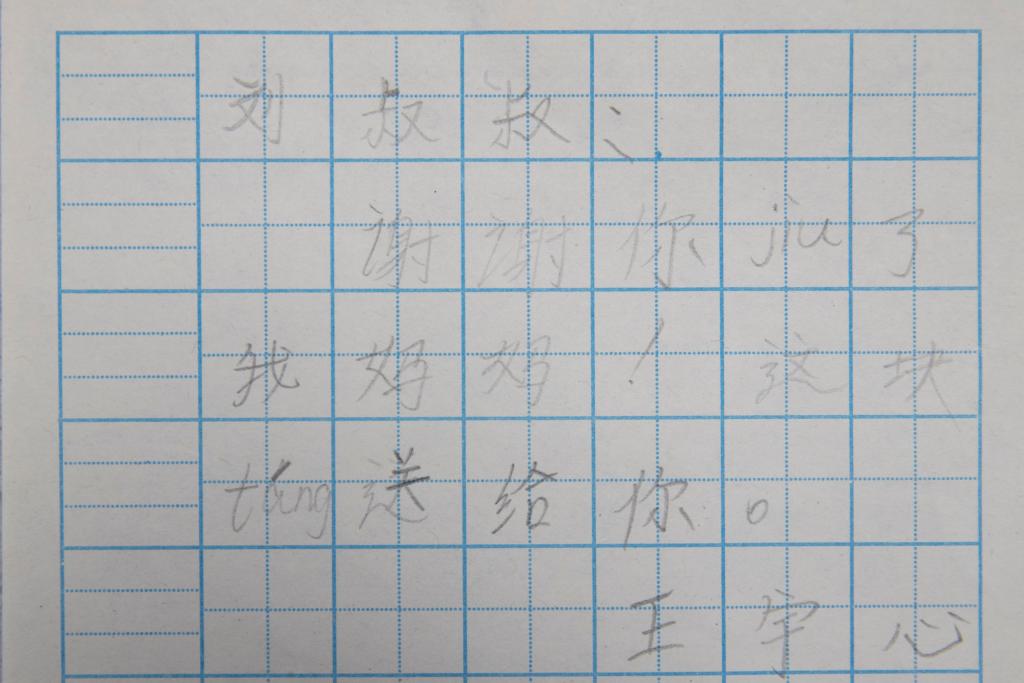 刘叔叔：
谢谢你jiu了
我妈妈！这块
táng送给你。
王宇心